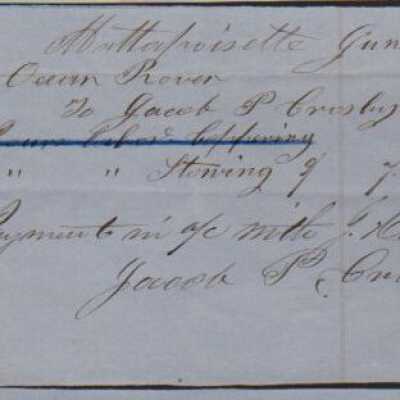 Mattapoisette Jun
Ocean Rover
To Jacob P Crosby
Labor Coppering
" " Stowing
Payment in a/c with J. H
Jacob P. Cro